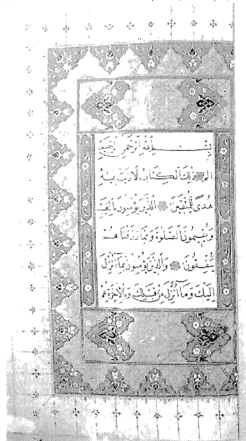 بِسْمِ اللّٰهِ الرَّحْمٰنِ الرَّحِيْمِ
الم ذٰلِكَ الْكِتَابُ لَا رَيْبَ فِيهِ
هُدًى لِلْمُتَّقِينَ الَّذِينَ يُؤْمِنُونَ بِالْغَيْبِ
وَيُقِيمُونَ الصَّلٰوةَ وَمِمَّا رَزَقْنَاهُمْ
يُنْفِقُونَ وَالَّذِينَ يُؤْمِنُونَ بِمَا أُنْزِلَ
إِلَيْكَ وَمَا أُنْزِلَ مِنْ قَبْلِكَ وَبِالْآخِرَةِ هُمْ